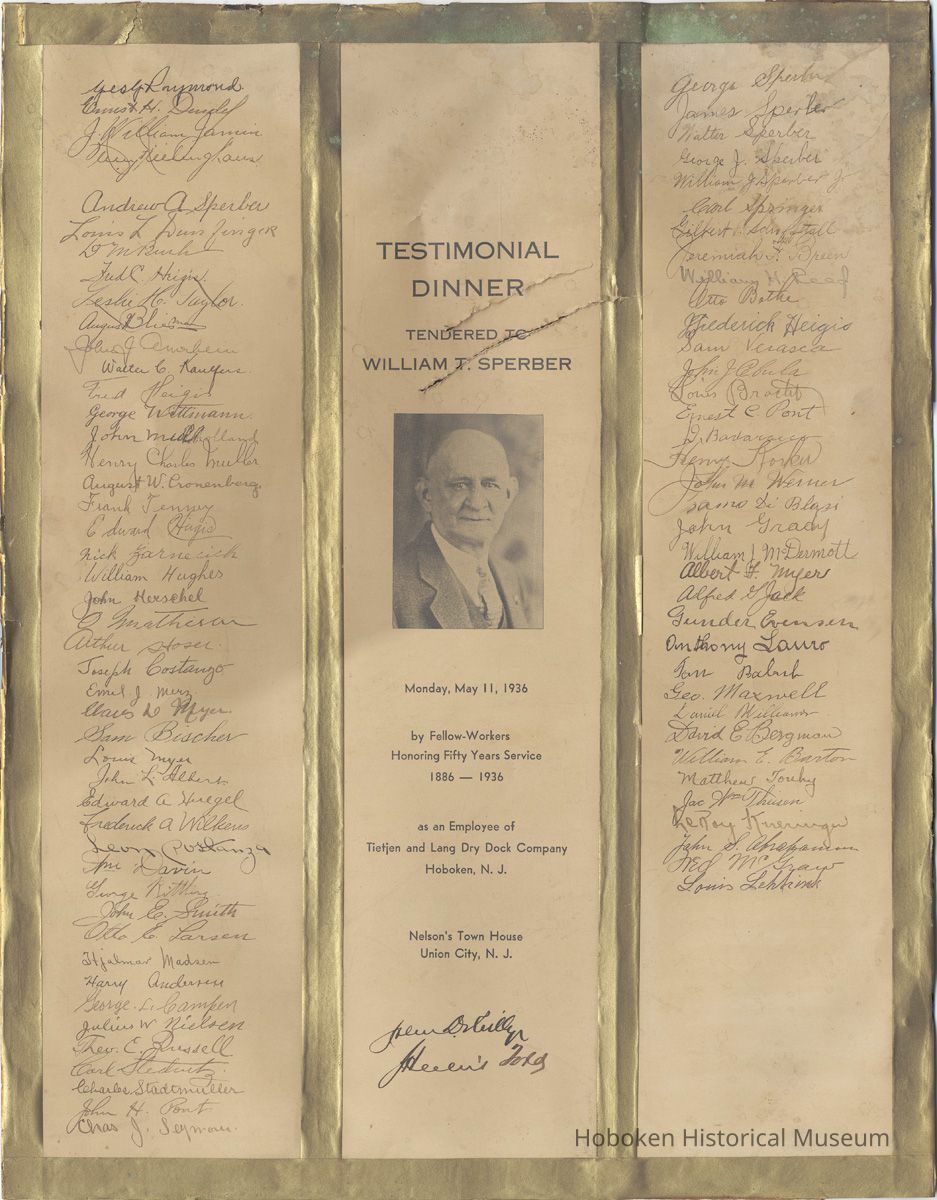 Raymond
Ernst H.
J. William Jamin
Andrew A Sperber
Louis L
D M Bush
Fred C. Heigis
Leslie H. Taylor.
August
John J
Walter C.
Fred Heigis
George Wittmann.
John Mulholland
Henry Charles Muller
August W. Cronenberg.
Frank Tenney
Edward Heigis
Nick Zarnecich
William Hughes
John Herschel
O Matheson
Arthur Hoser.
Joseph Costanzo
Emil J. Merz
Claus D Myer.
Sam Bischer
Louis Myer
John L. Alberts
Edward A Huegel
Frederick A Wilkens
Leon Costanza
Wm Davin
George
John E. Smith
Otto E. Larsen
Hjalmar Madsen
Harry Andersen
George L. Campen
Julius W Nielsen
Theo. E. Russell
Carl
Charles Stadtmuller
John H. Pont
Chas J. Seymour.
TESTIMONIAL
DINNER
TENDERED TO
WILLIAM T. SPERBER
Monday, May 11, 1936
by Fellow-Workers
Honoring Fifty Years Service
1886 — 1936
as an Employee of
Tietjen and Lang Dry Dock Company
Hoboken, N. J.
Nelson's Town House
Union City, N. J.
John D. Reilly
George Sperber
James Sperber
Walter Sperber
George J. Sperber
William J Sperber Jr
Carl Springer
Gilbert
Jeremiah F. Breen
William H. Reef
Otto Bothe
Friederick Heigis
Sam Verasca
John J Cbula
Louis
Ernest C. Pont
D. Badaracco
Henry Korker
John M. Werner
Di Blasi
John Grady
William J. McDermott
Albert F. Myer
Alfred G Jack
Gunder Evensen
Anthony Lauro
Tom Babish
Geo. Maxwell
Daniel Williams
David E. Bergman
William E. Barton
Matthew Touhy
Jac Wm Thusen
LeRoy
John S. Abrahamsen
Fred McGraw
Louis Lehtink
Hoboken Historical Museum